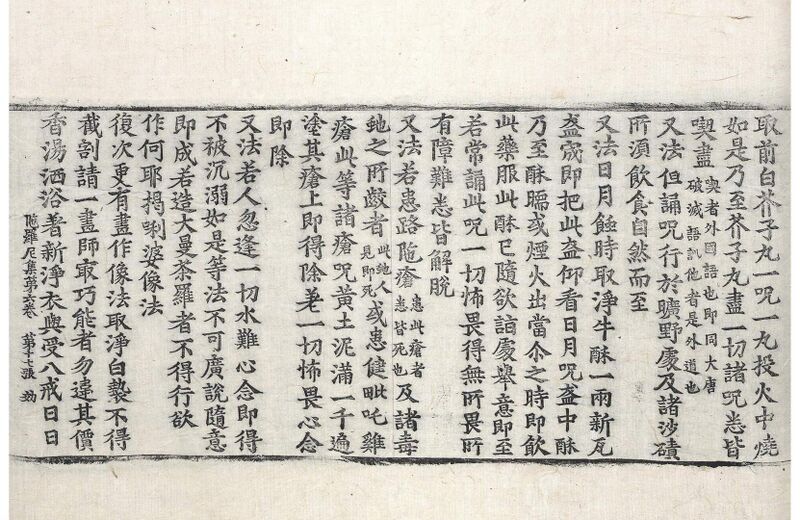 取前白芥子丸一呪一丸投火中燒
如是乃至芥子丸盡一切諸呪悉皆
喫盡喫者外國語也即同大唐
破滅語訓他者是外道也
又法但誦呪行於曠野處及諸沙磧
所須飲食自然而至
又法日月蝕時取淨牛酥一兩新瓦
盞成即把此盞仰看日月呪盞中酥
乃至酥暖或煙火出當尒之時即飲
此藥服此酥已隨欲詣處舉意即至
若常誦此呪一切怖畏得無所畏所
有障難悉皆解脫
又法若患路陁瘡患此瘡者
患皆死也及諸毒
虵之所齩者此虵人
見即死或患健毗吒雞
瘡此等諸瘡呪黃土泥滿一千遍
塗其瘡上即得除差一切怖畏心念
即除
又法若人忽逢一切水難心念即得
不被沉溺如是等法不可廣說隨意
即成若造大曼荼羅者不得行欲
作何耶揭唎婆像法
復次更有畫作像法取淨白㲲不得
截割請一畫師㝡巧能者勿違其價
香湯洒浴著新淨衣與受八戒日日
陁羅尼集第六卷 第十七張